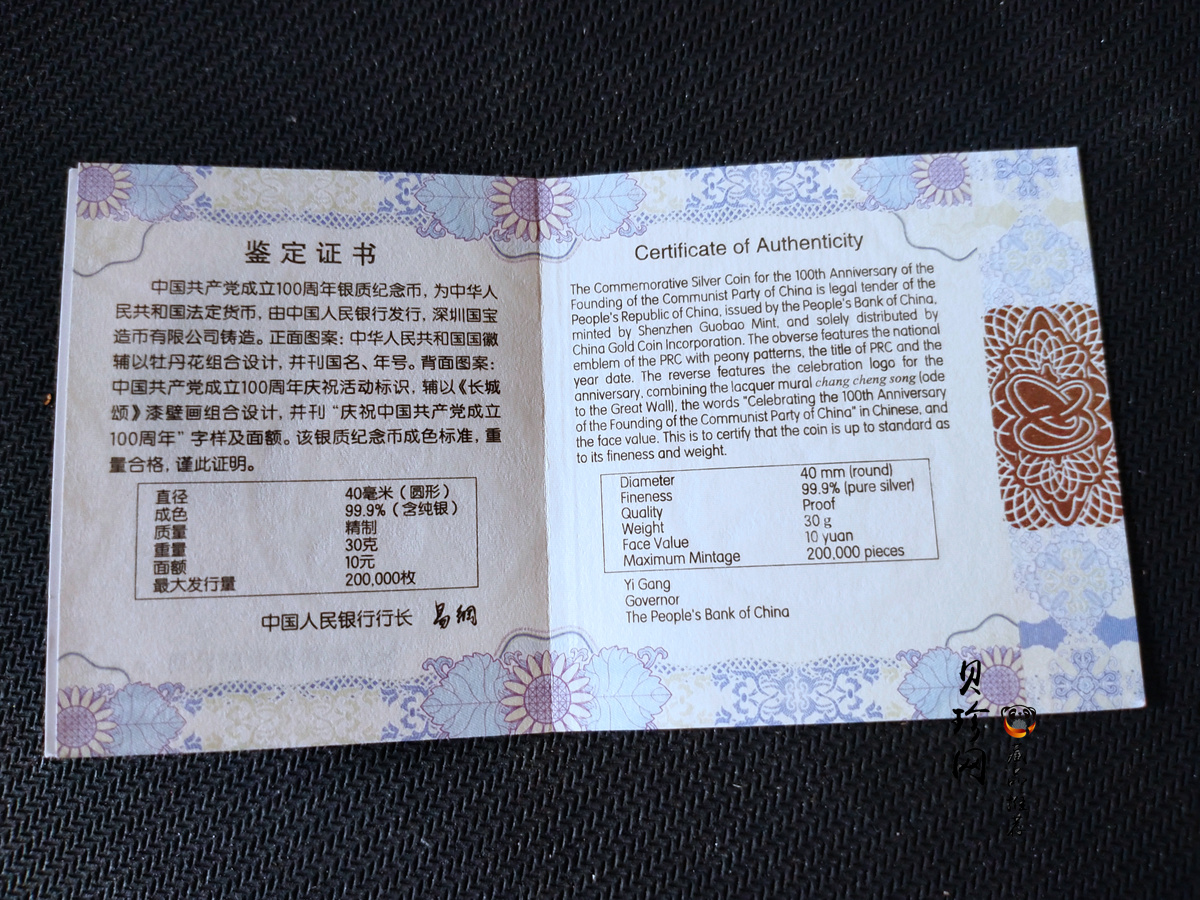 鉴定证书
中国共产党成立100周年银质纪念币，为中华人
民共和国法定货币，由中国人民银行发行，深圳国宝
造币有限公司铸造。正面图案：中华人民共和国国徽
辅以牡丹花组合设计，并刊国名、年号。背面图案：
中国共产党成立100周年庆祝活动标识，辅以《长城
颂》漆壁画组合设计，并刊“庆祝中国共产党成立
100周年”字样及面额。该银质纪念币成色标准，重
量合格，谨此证明。
直径 40毫米（圆形）
成色 99.9%（含纯银）
质量 精制
重量 30克
面额 10元
最大发行量 200,000枚
中国人民银行行长 易纲
Certificate of Authenticity
The Commemorative Silver Coin for the 100th Anniversary of the
Founding of the Communist Party of China is legal tender of the
People's Republic of China, issued by the People's Bank of China,
minted by Shenzhen Guobao Mint, and solely distributed by
China Gold Coin Incorporation. The obverse features the national
emblem of the PRC with peony patterns, the title of PRC and the
year date. The reverse features the celebration logo for the
anniversary, combining the lacquer mural chang cheng song (ode
to the Great Wall), the words "Celebrating the 100th Anniversary
of the Founding of the Communist Party of China" in Chinese, and
the face value. This is to certify that the coin is up to standard as
to its fineness and weight.
Diameter 40 mm (round)
Fineness 99.9% (pure silver)
Quality Proof
Weight 30 g
Face Value 10 yuan
Maximum Mintage 200,000 pieces
Yi Gang
Governor
The People's Bank of China
贝珍网